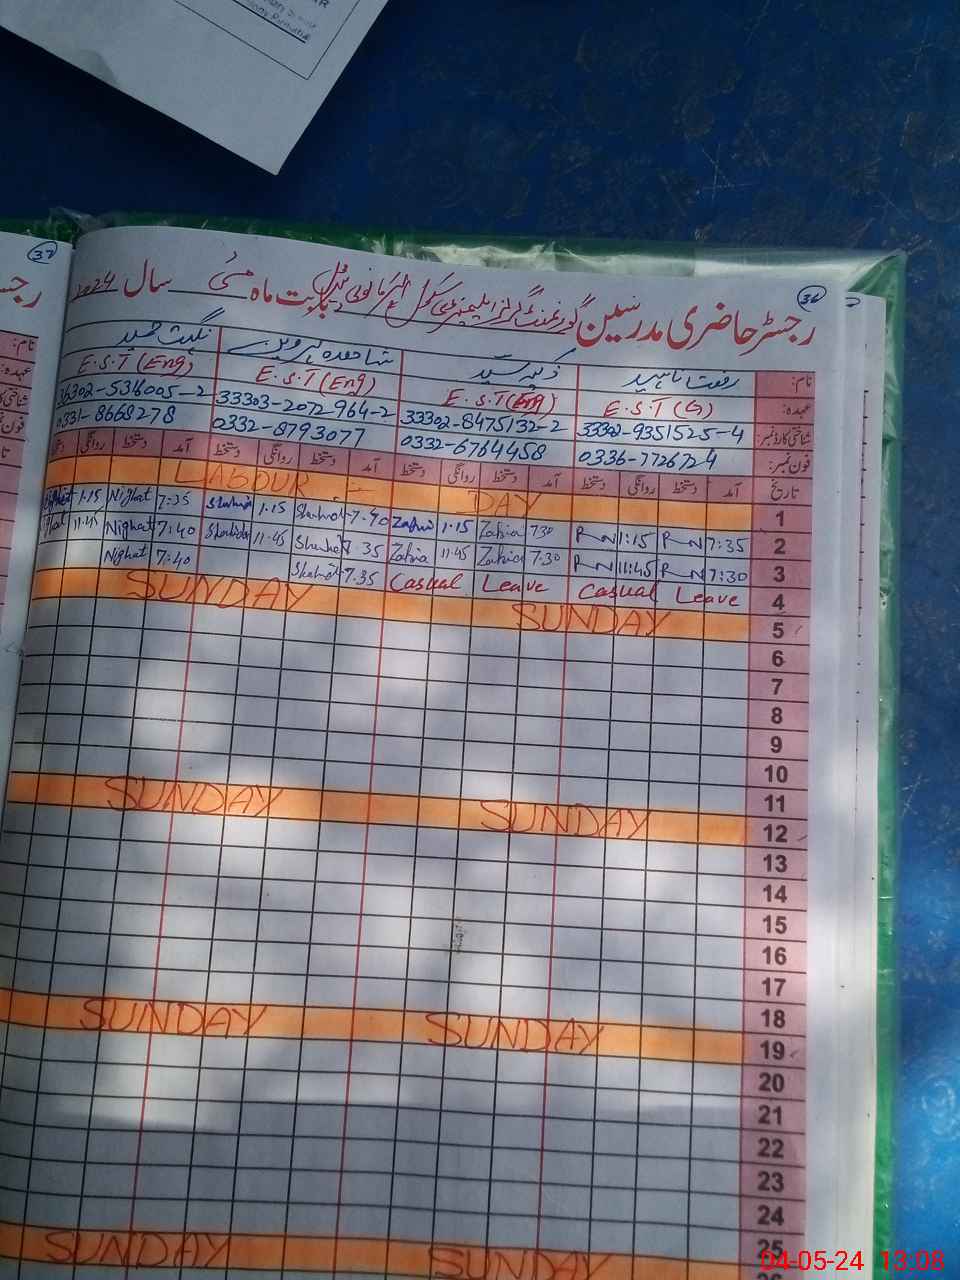 36
37
رجسٹر حاضری مدرسین گورنمنٹ گرلز ایلیمنٹری سکول بابت ماہ مئی سال 2024
نام: رفعت ناہید ذکیہ سید شاھدہ پروین نگہت حمید
عہدہ: E.S.T (G) E.S.T (Eng) E.S.T (Eng) E.S.T (Eng)
شناختی کارڈ نمبر: 33302-9351525-4 33302-8475132-2 33303-2072964-2 36302-5316005-2
فون نمبر: 0336-7726724 0332-6764458 0332-8793077 0331-8668278
تاریخ آمد دستخط روانگی دستخط آمد دستخط روانگی دستخط آمد دستخط روانگی دستخط آمد دستخط روانگی دستخط
LABOUR - DAY 1
Nighat 1.15 Nighat 7:35 Shahida 1.15 Shahida 7.40 Zakia 1.15 Zakia 7.30 RN 1:15 RN 7:35 2
11.45 Nighat 7:40 Shahida 11.45 Shahida 7.35 Zakia 11.45 Zakia 7.30 RN 11.45 RN 7:30 3
Nighat 7:40 Shahida 7.35 Casual Leave Casual Leave 4
SUNDAY SUNDAY 5
6
7
8
9
10
11
SUNDAY SUNDAY 12
13
14
15
16
17
18
SUNDAY SUNDAY 19
20
21
22
23
24
25
SUNDAY SUNDAY
04-05-24 13:08